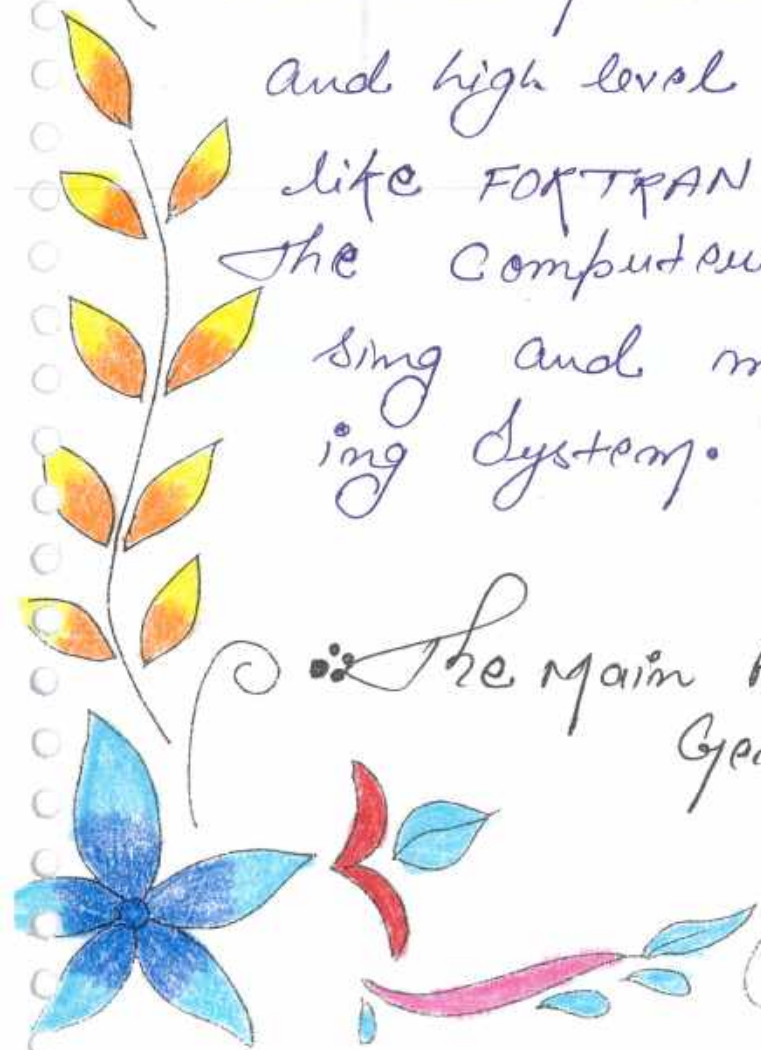 and high level
like FORTRAN
The Computer
sing and m
ing System.
The Main
Gen